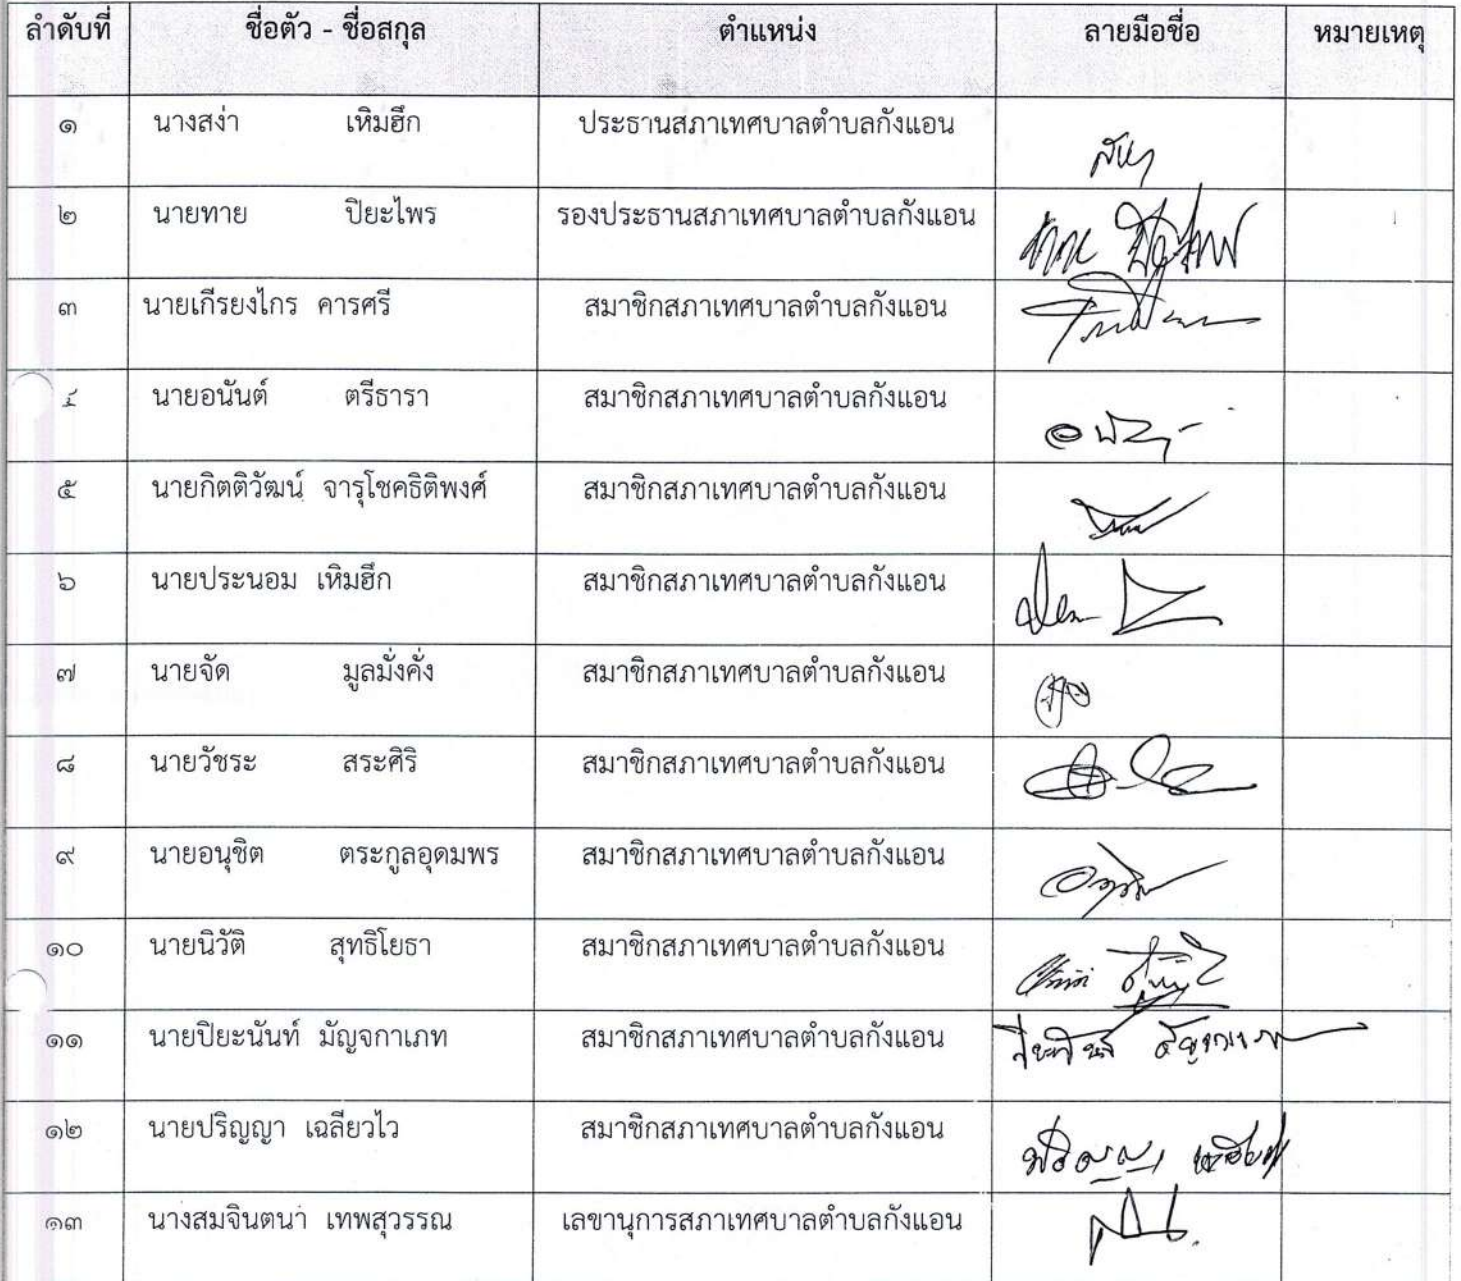 ลำดับที่ ชื่อตัว - ชื่อสกุล ตำแหน่ง ลายมือชื่อ หมายเหตุ
๑ นางสง่า เหิมฮึก ประธานสภาเทศบาลตำบลกังแอน
๒ นายทาย ปิยะไพร รองประธานสภาเทศบาลตำบลกังแอน
๓ นายเกีรยงไกร คารศรี สมาชิกสภาเทศบาลตำบลกังแอน
๔ นายอนันต์ ตรีธารา สมาชิกสภาเทศบาลตำบลกังแอน
๕ นายกิตติวัฒน์ จารุโชคธิติพงศ์ สมาชิกสภาเทศบาลตำบลกังแอน
๖ นายประนอม เหิมฮึก สมาชิกสภาเทศบาลตำบลกังแอน
๗ นายจัด มูลมั่งคั่ง สมาชิกสภาเทศบาลตำบลกังแอน
๘ นายวัชระ สระศิริ สมาชิกสภาเทศบาลตำบลกังแอน
๙ นายอนุชิต ตระกูลอุดมพร สมาชิกสภาเทศบาลตำบลกังแอน
๑๐ นายนิวัติ สุทธิโยธา สมาชิกสภาเทศบาลตำบลกังแอน
๑๑ นายปิยะนันท์ มัญจกาเภท สมาชิกสภาเทศบาลตำบลกังแอน
๑๒ นายปริญญา เฉลียวไว สมาชิกสภาเทศบาลตำบลกังแอน
๑๓ นางสมจินตนา เทพสุวรรณ เลขานุการสภาเทศบาลตำบลกังแอน